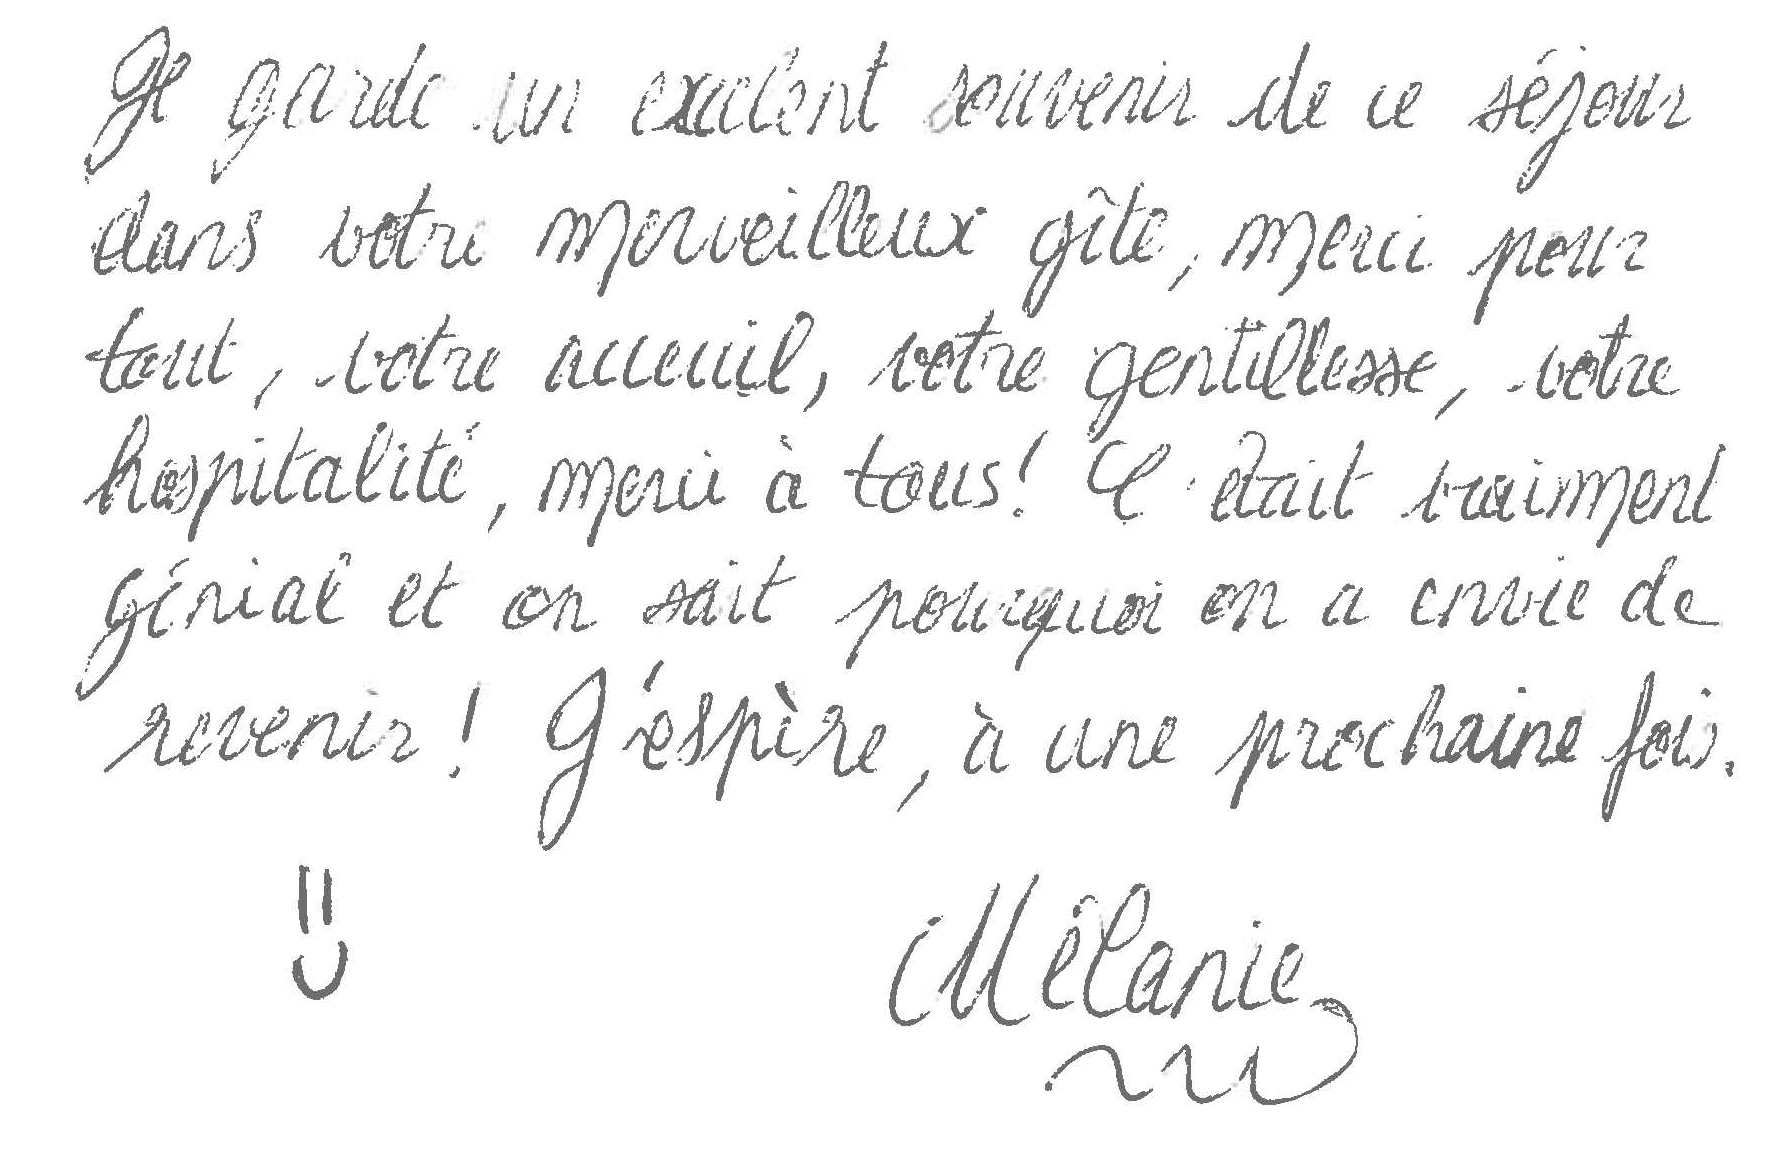 Je garde un excelent souvenir de ce séjour
dans votre merveilleux gîte, merci pour
tout, votre acceuil, votre gentillesse, votre
hospitalité, merci à tous! C'était vraiment
génial et on sait pourquoi on a envie de
revenir! J'éspère, à une prochaine fois.
Mélanie